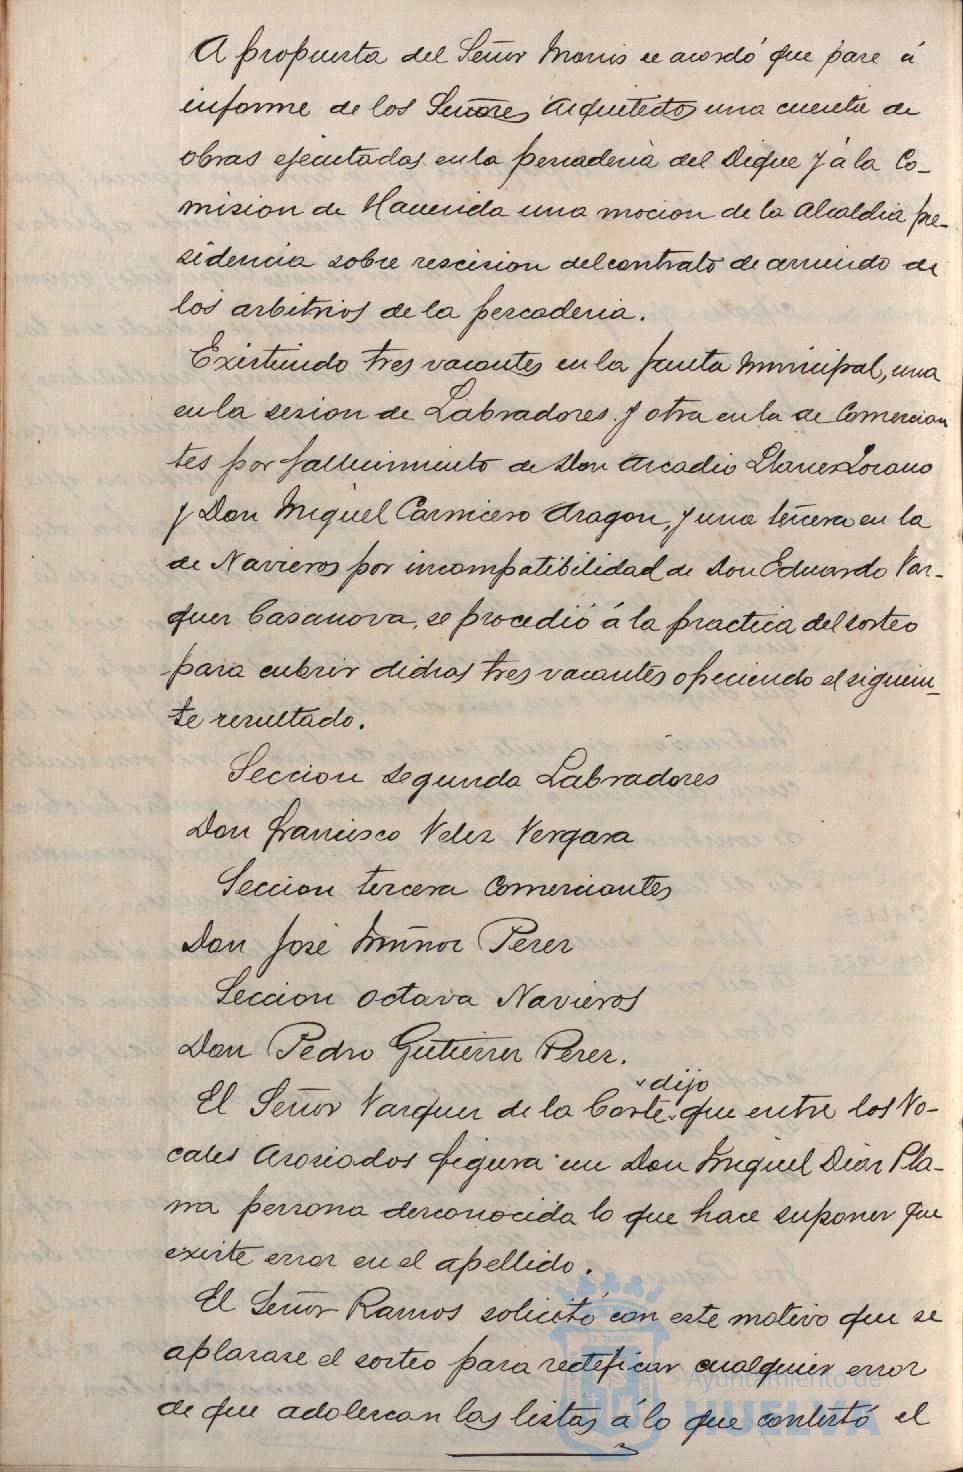 A propuesta del Señor Morris se acordó que pase á
informe de los Señores Arquitectos una cuenta de
obras ejecutadas en la pescaderia del Dique y á la Co-
mision de Hacienda una mocion de la Alcaldia pre-
sidencia sobre rescision del contrato de arriendo de
los arbitrios de la pescaderia.
Existiendo tres vacantes en la Junta Municipal, una
en la sesion de Labradores y otra en la de Comercian
tes por fallecimiento de Don Arcadio Llanes Lozano
y Don Miguel Carnicero Aragon, y una tercera en la
de Navieros por incompatibilidad de Don Eduardo Vaz-
quez Casanova, se procedió á la practica del sorteo
para cubrir dichas tres vacantes ofreciendo el siguien-
te resultado.
Seccion segunda Labradores
Don Francisco Velez Vergara
Seccion tercera Comerciantes
Don José Muñoz Perez
Seccion octava Navieros
Don Pedro Gutierrez Perez.
El Señor Vazquez de la Corte dijo que entre los Vo-
cales Asociados figura un Don Miguel Diaz Pla-
na persona desconocida lo que hace suponer que
existe error en el apellido.
El Señor Ramos solicitó con este motivo que se
aplazase el sorteo para rectificar cualquier error
de que adolezcan las listas á lo que contestó el
ET TERRAE
Ayuntamiento de
HUELVA